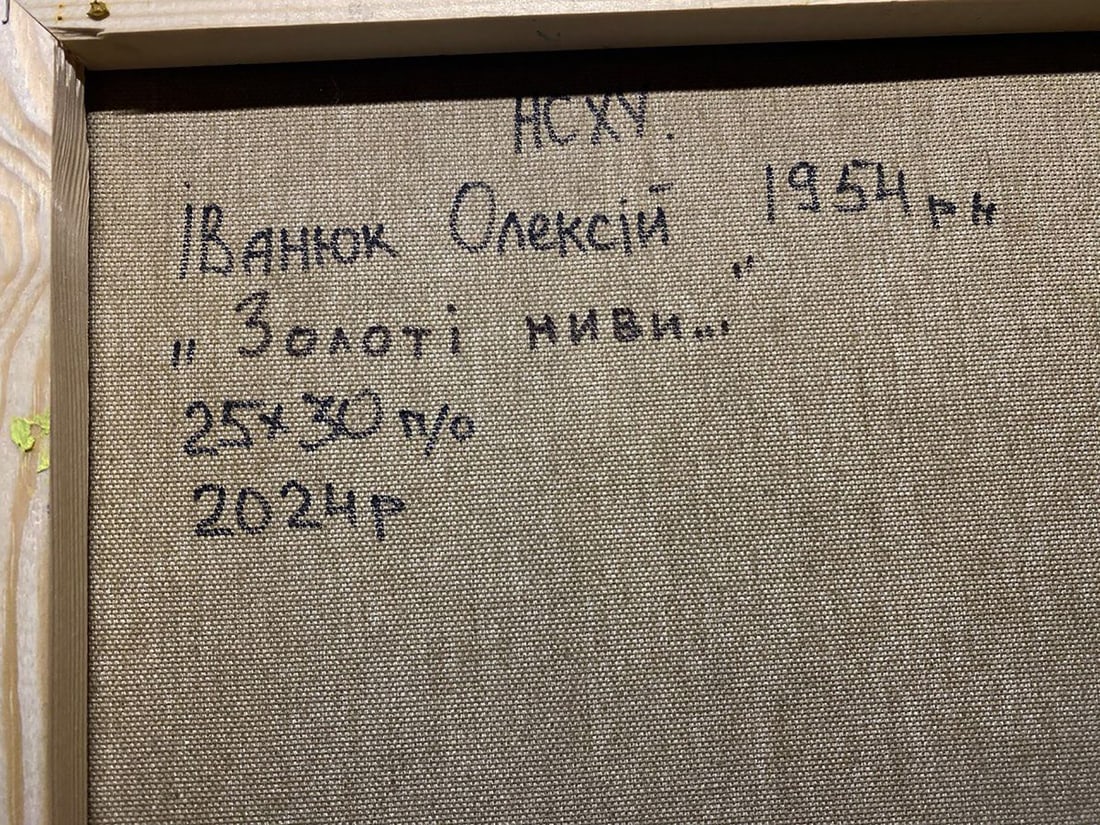 НСХУ.
Іванюк Олексій 1954 рн
„Золоті ниви..."
25х30 п/о
2024р